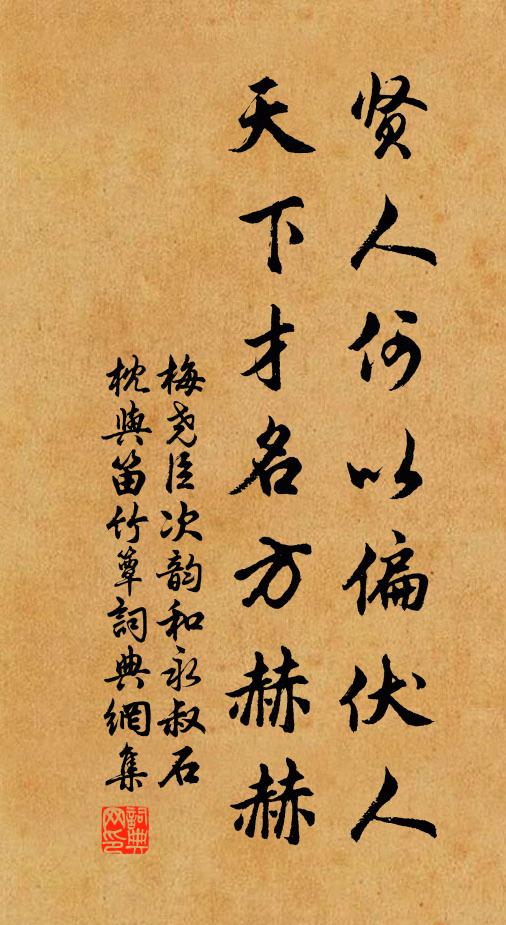 贤人何以偏伏人
天下才名方赫赫
梅尧臣次韵和永叔石
枕與笛竹簟詞典網集
詞典网印